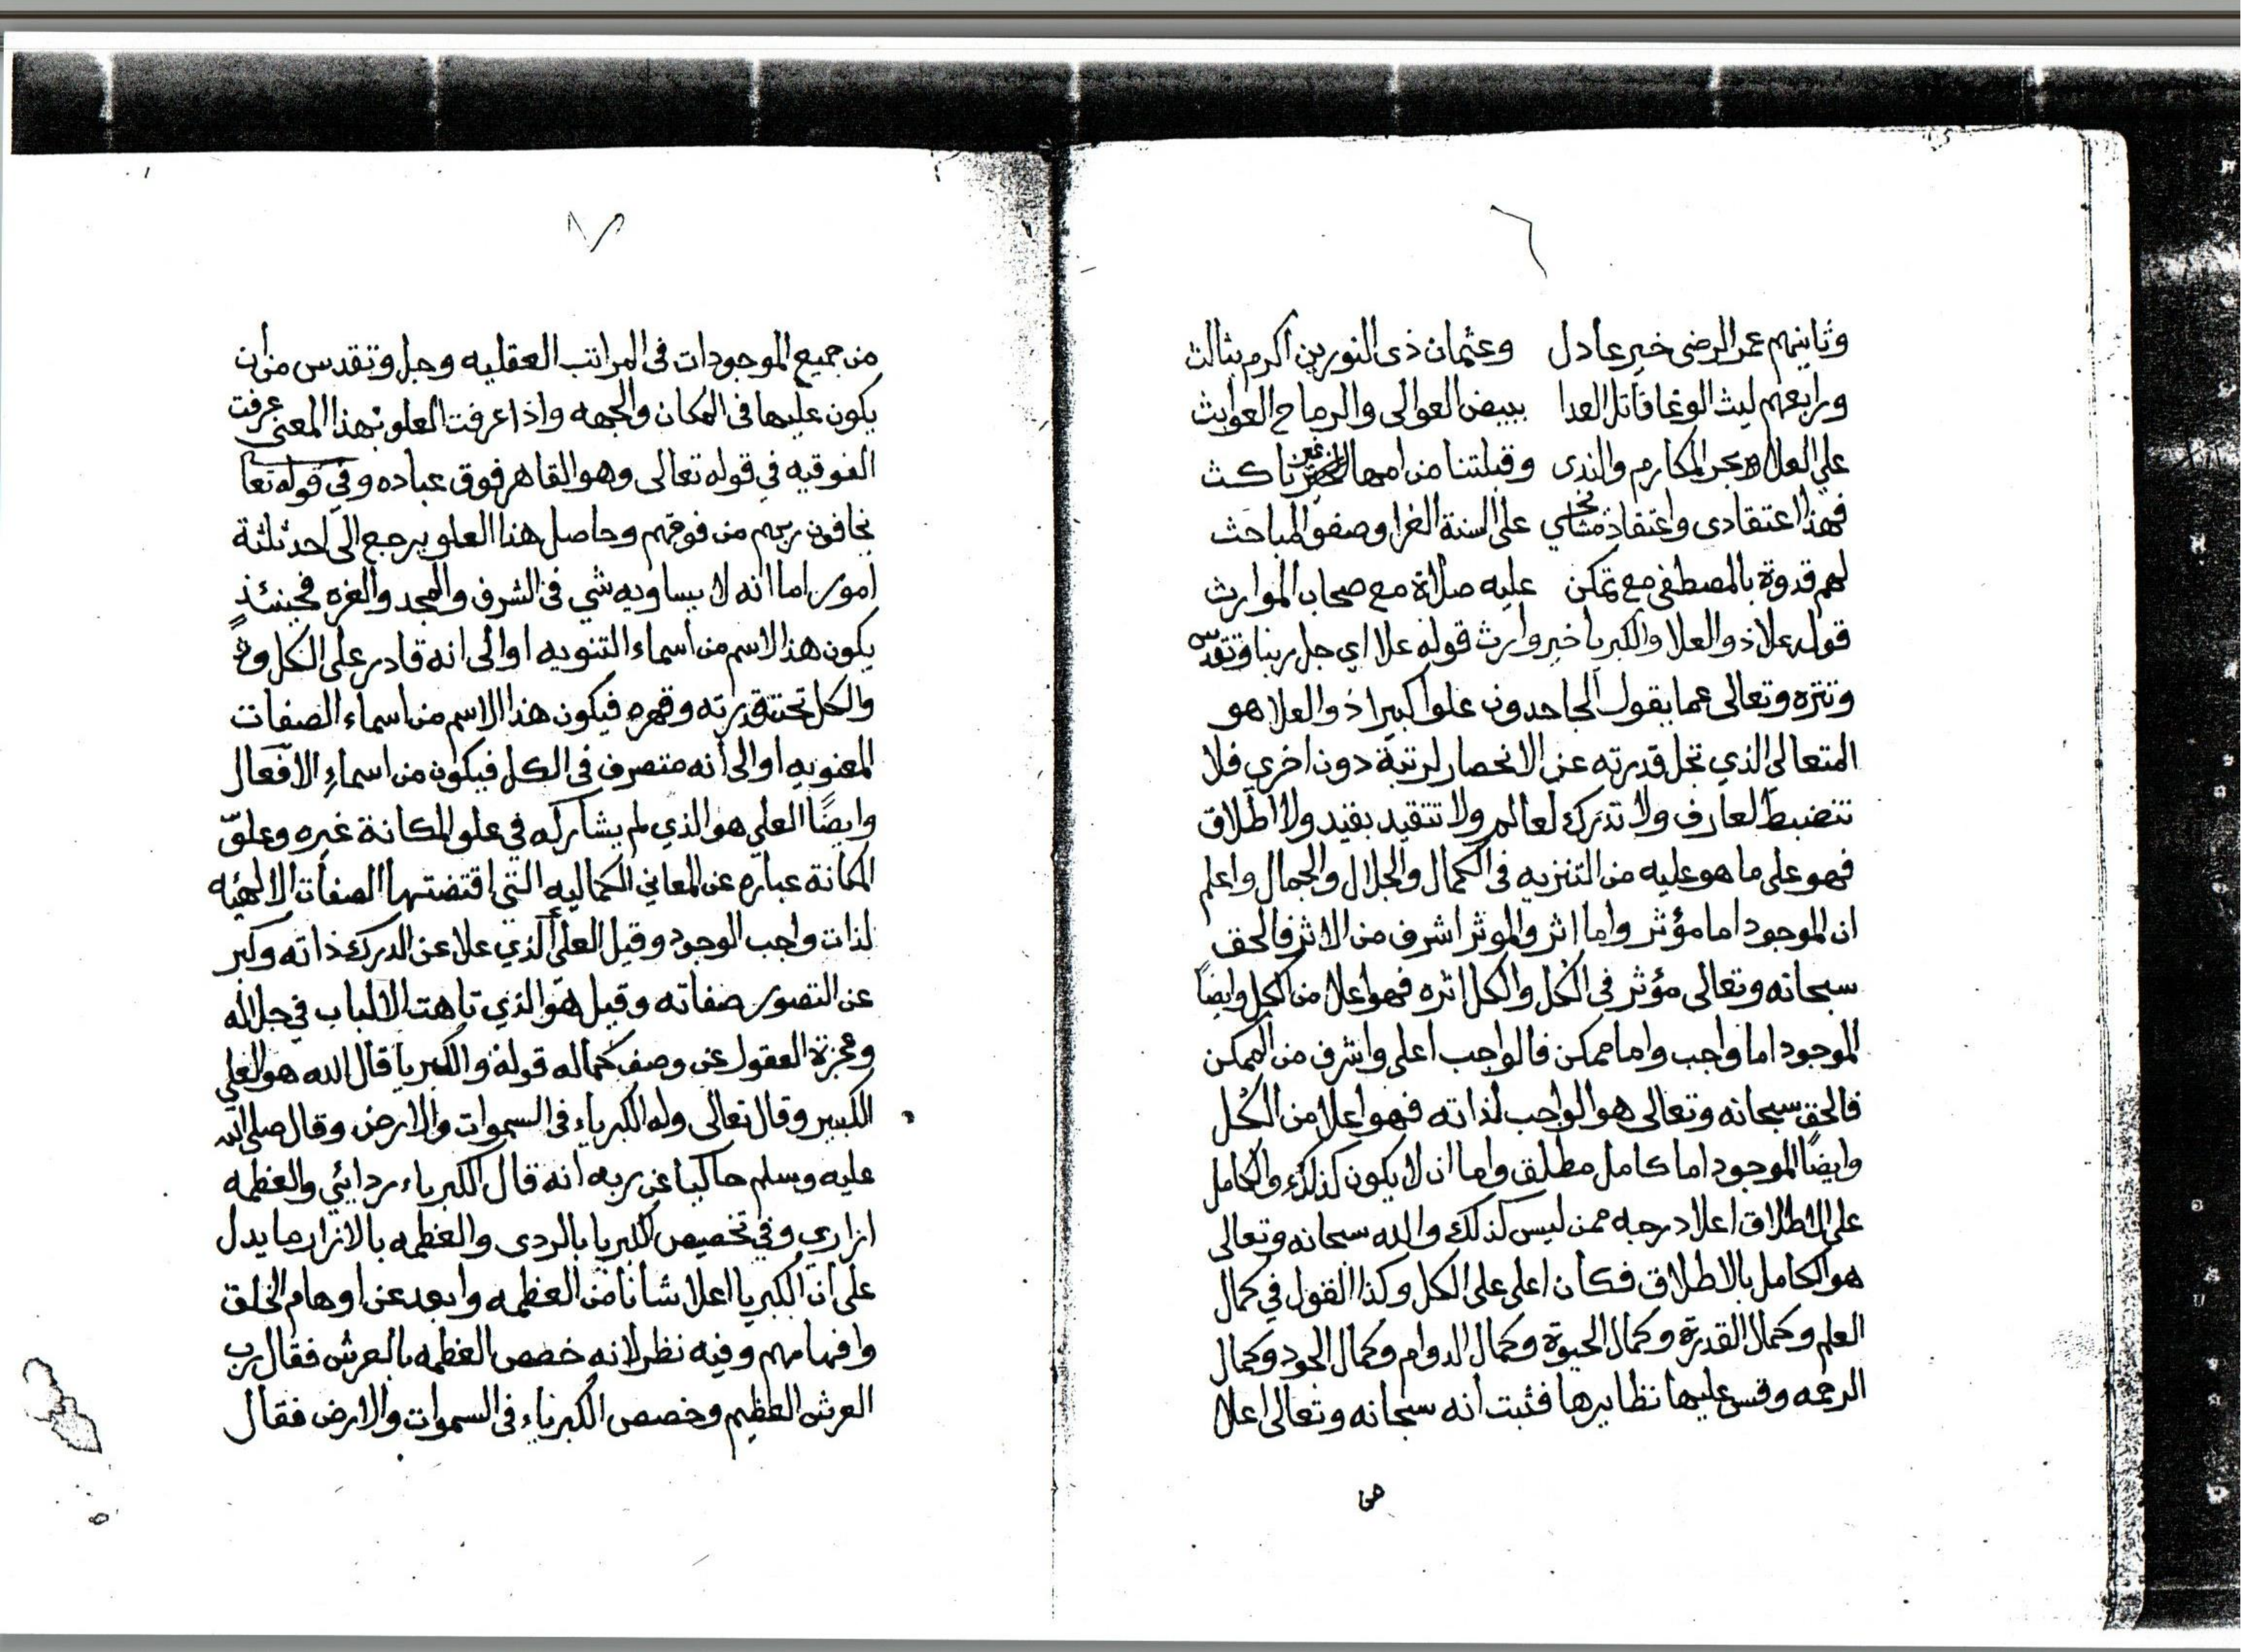 ٦
وثانيهم عمر الرضى خير عادل وعثمان ذى النورين اكرم بثالث
ورابعهم ليث الوغا قاتل العدا ببيض العوالى والرماح العوابث
على العلا بحر المكارم والندى وقبلتنا من امها غير ناكث
فهذا اعتقادى واعتقاد مشايخي على السنة الغرا وصفو المباحث
لهم قدوة بالمصطفى مع تمكن عليه صلاة مع صحاب الموارث
قوله علا ذو العلا والكبريا خير وارث قوله علا اي جل ربنا وتقدس
وتنزه وتعالى عما يقول الجاحدون علوا كبيرا ذو العلا هو
المتعالي الذي تجل قدرته عن الانحصار لرتبة دون اخري فلا
تنضبط لعارف ولا تدرك لعالم ولا تتقيد بقيد ولا اطلاق
فهو على ما هو عليه من التنزيه فى الكمال والجلال والجمال واعلم
ان الموجود اما مؤثر واما اثر والموثر اشرف من الاثر فالحق
سبحانه وتعالى مؤثر فى الكل والكل اثره فهو اعلا من الكل وايضاً
الموجود اما واجب واما ممكن فالواجب اعلى واشرف من الممكن
فالحق سبحانه وتعالى هو الواجب لذاته فهو اعلا من الكل
وايضاً الموجود اما كامل مطلق واما ان لا يكون كذلك والكامل
على الاطلاق اعلا درجه ممن ليس كذلك والله سبحانه وتعالى
هو الكامل بالاطلاق فكان اعلى على الكل وكذا القول في كمال
العلم وكمال القدرة وكمال الحيوة وكمال الدوام وكمال الجود وكمال
الرحمه وقس عليها نظايرها فثبت انه سبحانه وتعالى اعلا
من
٧
من جميع الموجودات فى المراتب العقليه وجل وتقدس من ان
يكون عليها فى المكان والجهه واذا عرفت العلو بهذا المعنى عرفت
الفوقيه في قوله تعالى وهو القاهر فوق عباده وفي قوله تعا
يخافون ربهم من فوقهم وحاصل هذا العلو يرجع الى احد ثلثة
امور اما انه لا يساويه شي فى الشرف والمجد والعزه فحينئذٍ
يكون هذا الاسم من اسماء التنويه او الى انه قادر على الكل و
والكل تحت قدرته وقهره فيكون هذا الاسم من اسماء الصفات
المعنويه او الى انه متصرف فى الكل فيكون من اسماء الافعال
وايضًا العلي هو الذي لم يشاركه في علو المكانة غيره وعلوّ
المكانة عباره عن المعاني الكماليه التي اقتضتها الصفات الالهيه
لذات واجب الوجود وقيل العلي الذي علا عن الدرك ذاته وكبر
عن التصور صفاته وقيل هو الذي تاهت الالباب في جلاله
وعجزة العقول عن وصف كماله قوله والكبريا قال الله هو العلي
الكبير وقال تعالى وله الكبرياء فى السموات والارض وقال صلى الله
عليه وسلم حاكيا عن ربه انه قال الكبرياء ردايئي والعظمه
ازاري وفي تخصيص الكبريا بالردى والعظمه بالازار ما يدل
على ان الكبريا اعلا شانا من العظمه وابعد عن اوهام الخلق
وافهامهم وفيه نظر لانه خصص العظمه بالعرش فقال رب
العرش العظيم وخصص الكبرياء فى السموات والارض فقال